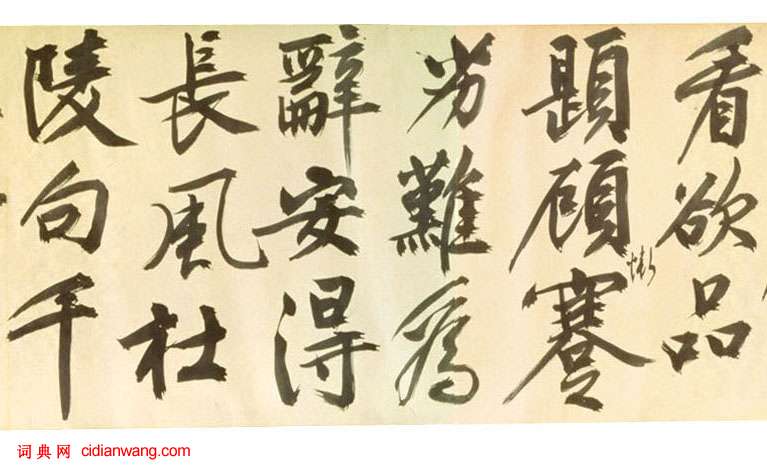 看欲品
題顧慚蹇
劣難為
辭安得
長風杜
陵句千
词典网 cidianwang.com